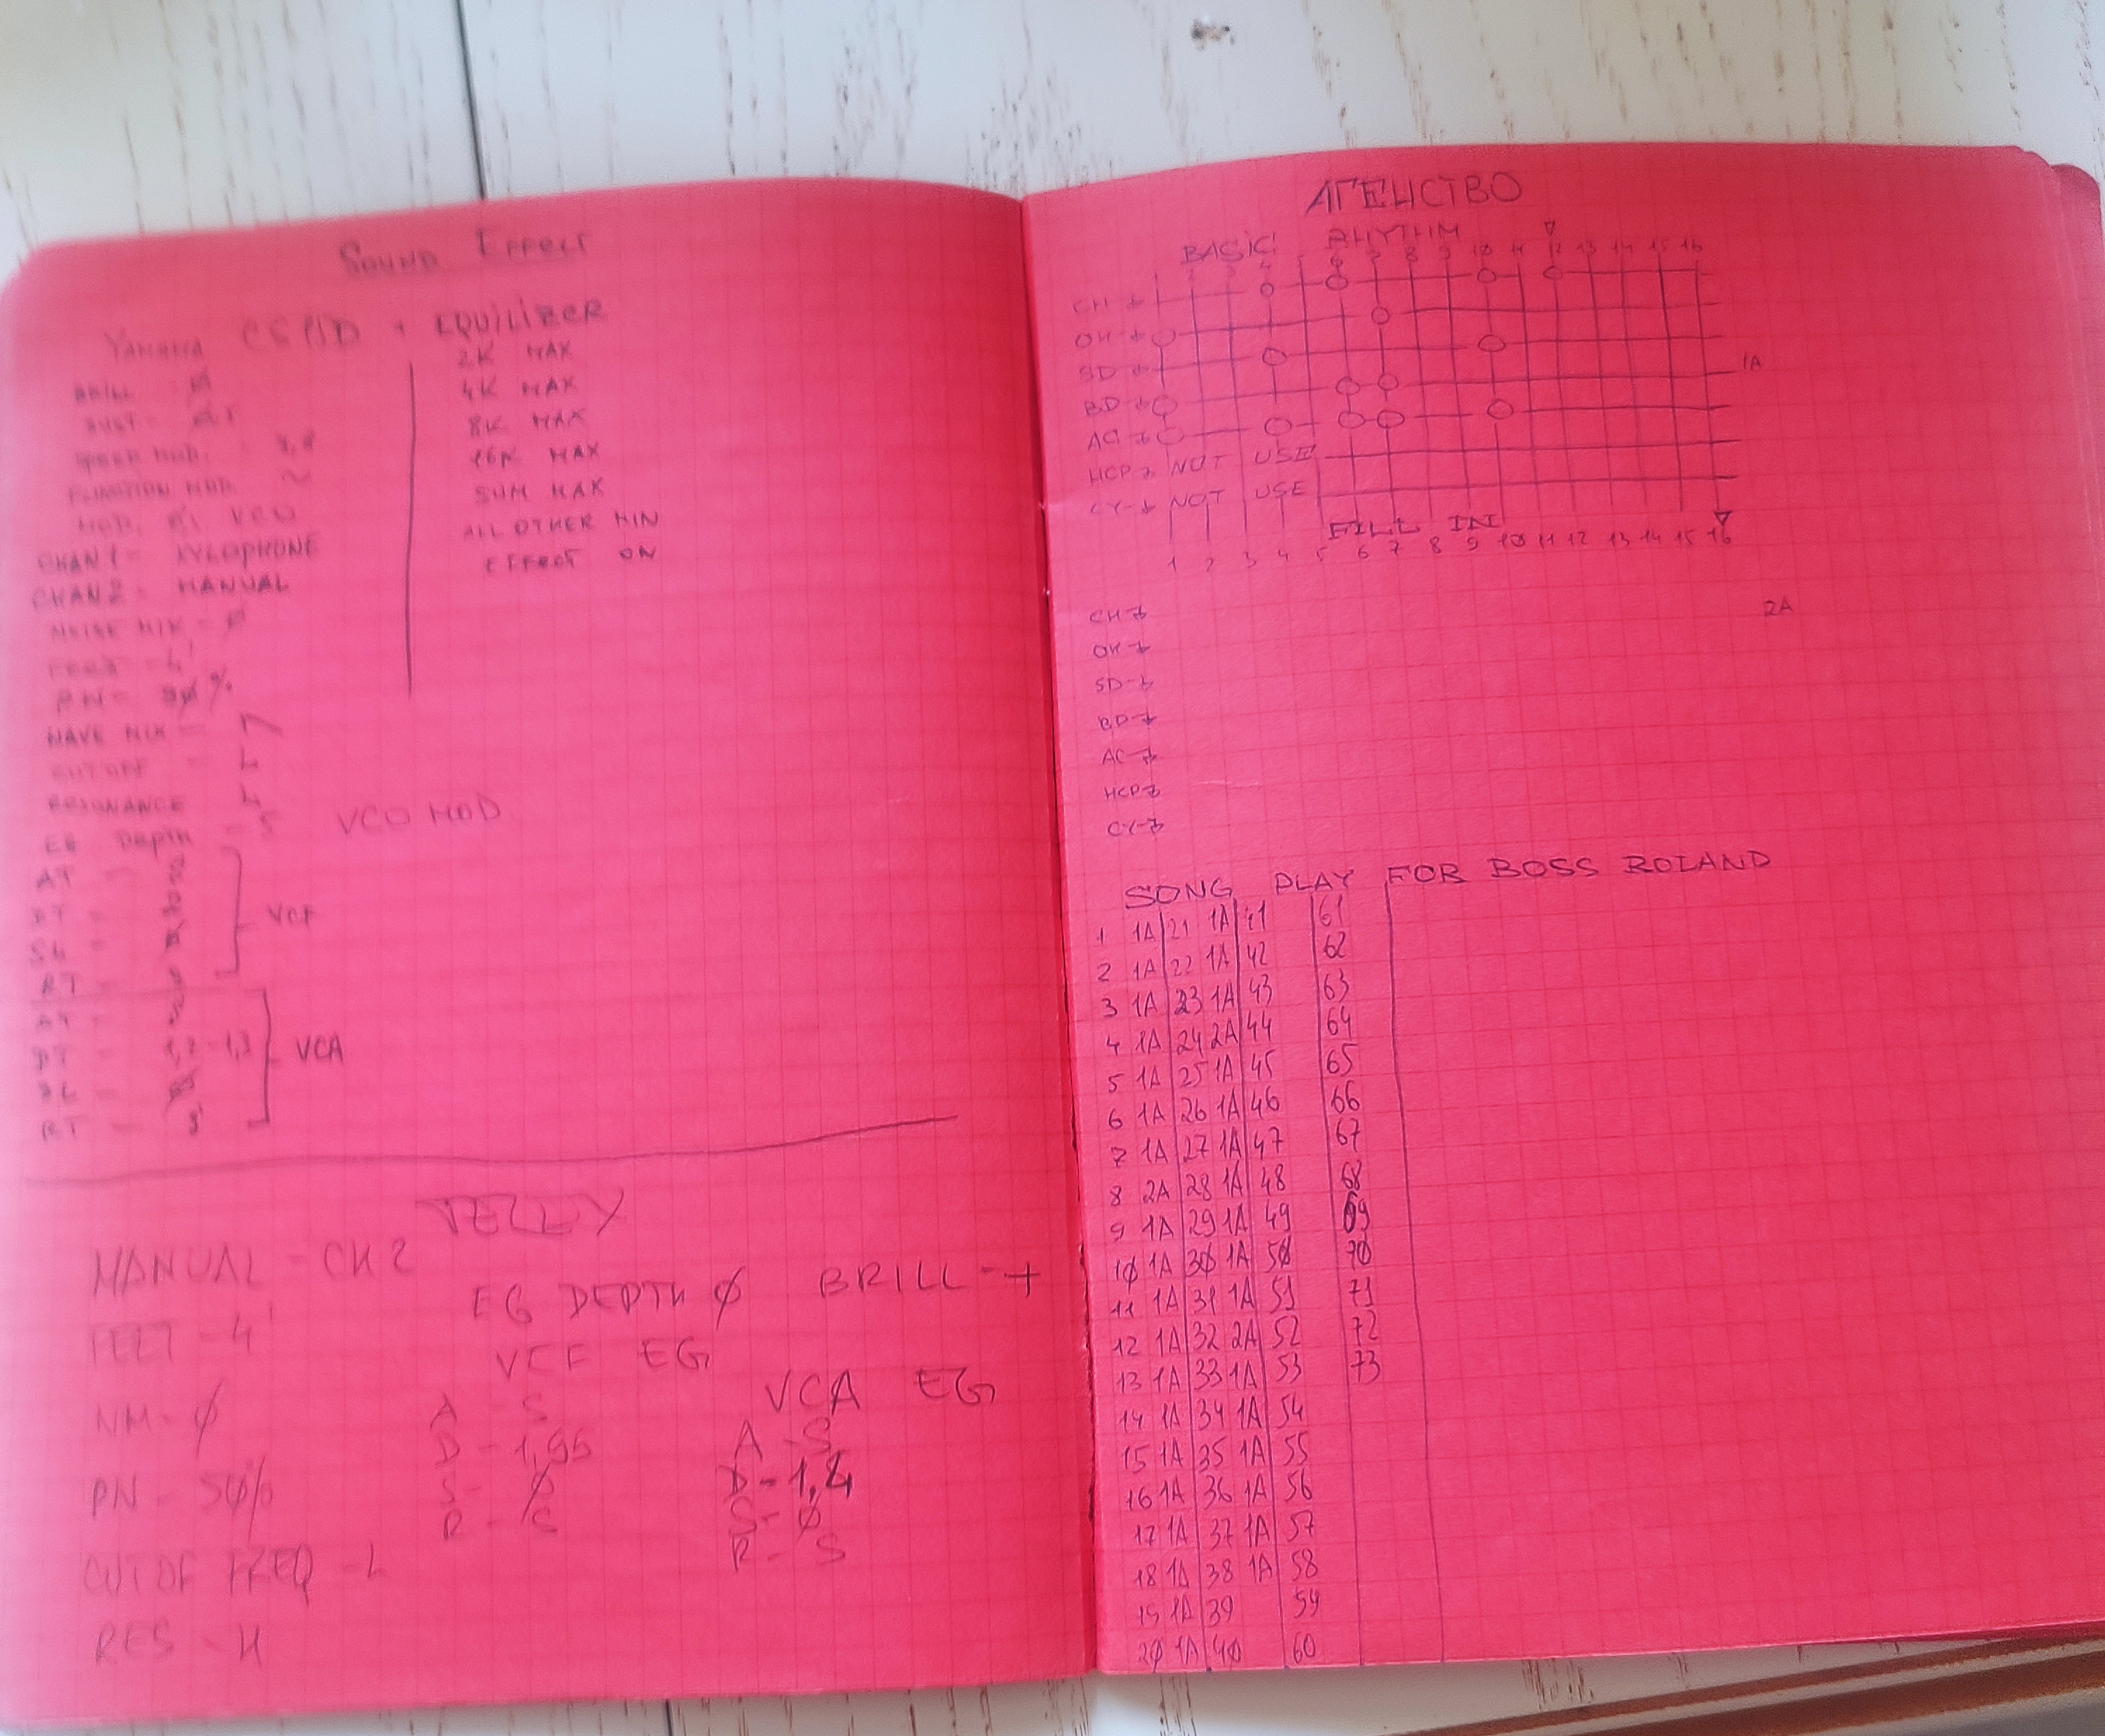 SOUND EFFECT
YAMAHA CS01D + EQUILIZER
BRILL - Ø
2K MAX
4K MAX
8K MAX
16K MAX
SUM MAX
ALL OTHER MIN
EFFECT ON
FUNCTION MOD. ~
CHAN1 = XYLOPHONE
CHAN2 = MANUAL
NOISE MIX = Ø
FEET = 4'
WAVE MIX =
CUTOFF - L
RESONANCE L
EG DEPTH - 5 VCO MOD
AT -
DT -
SL -
RT -
VCF
AT -
DT - 1,2-1,3
SL -
RT - S
VCA
JELLY
MANUAL - CH 2
EG DEPTH Ø BRILL - +
FEET - 4'
VCF EG
VCA EG
NM - Ø
A - S
D - 1,95
S - Ø
R - S
A - S
D - 1,4
S - Ø
R - S
PN - 50%
CUTOF FREQ - L
RES - H
АГЕНСТВО
BASIC RHYTHM
CH
OH
SD
1A
BD
AC
HCP NOT USE
CY NOT USE
FILL IN
1 2 3 4 5 6 7 8 9 10 11 12 13 14 15 16
CH
2A
OH
SD
BD
AC
HCP
CY
SONG PLAY FOR BOSS ROLAND
1 1A 21 1A 41 61
2 1A 22 1A 42 62
3 1A 23 1A 43 63
4 1A 24 2A 44 64
5 1A 25 1A 45 65
6 1A 26 1A 46 66
7 1A 27 1A 47 67
8 2A 28 1A 48 68
9 1A 29 1A 49 69
1Ø 1A 3Ø 1A 5Ø 7Ø
11 1A 31 1A 51 71
12 1A 32 2A 52 72
13 1A 33 1A 53 73
14 1A 34 1A 54
15 1A 35 1A 55
16 1A 36 1A 56
17 1A 37 1A 57
18 1A 38 1A 58
19 1A 39 59
2Ø 1A 4Ø 60